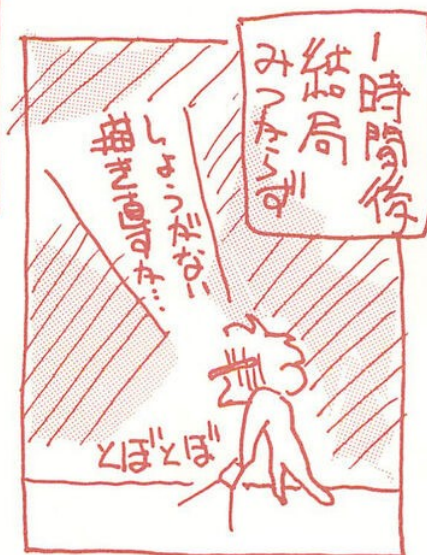 1時間後
結局
みつからず
しょうがない
描き直すか…
とぼとぼ